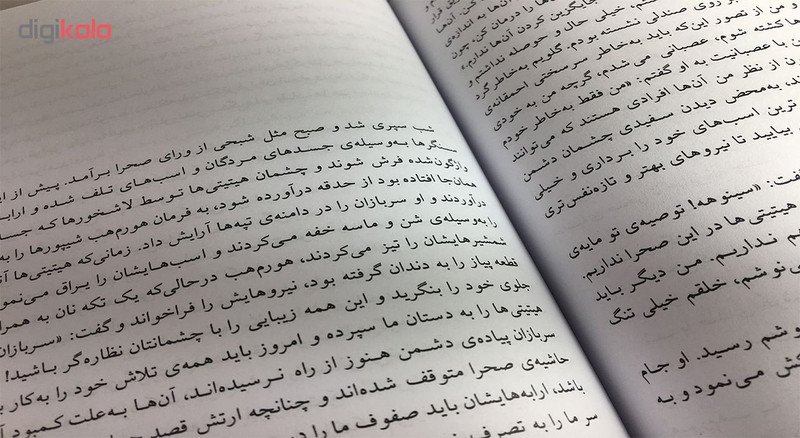 digikala
کن. آن‌ها
آن‌ها به اندازه‌ی
را درمان کن، چون
جایگزین کردن آن‌ها نداریم.»
روی صندلی نشسته بودم. گلویم به‌خاطر گرد
خیلی حال و حوصله نداشتم و
و من از تصور این‌که باید به‌خاطر سرسختی احمقانه‌ی
کشته شوم، عصبانی می‌شدم، گرچه من به خودی
با عصبانیت به او گفتم: «من فقط به‌خاطر خودم
از نظر من آن‌ها افرادی هستند که می‌توانند
به‌محض دیدن سفیدی چشمان دشمن
ترین اسب‌های خود را برداری و خیلی
بیایید تا نیروهای بهتر و تازه‌نفس‌تری
گفت: «سینوهه! توصیه‌ی تو مایه‌ی
هیتیتی‌ها در این صحرا نداریم.
نداریم. من دیگر باید
نوشم، خلقم خیلی تنگ
شم رسید. او جام
می‌نمود و به
شب سپری شد و صبح مثل شبحی از ورای صحرا برآمد. پیش از این
سنگرها به‌وسیله‌ی جسدهای مردگان و اسب‌های تلف شده و ارابه
واژگون‌شده فرش شوند و چشمان هیتیتی‌ها توسط لاشخورها که جسد
همان‌جا افتاده بود از حدقه درآورده شود، به فرمان هورم‌هب شیپورها را به
درآوردند و او سربازان را در دامنه‌ی تپه‌ها آرایش داد. زمانی‌که هیتیتی‌ها
را به‌وسیله‌ی شن و ماسه خفه می‌کردند و اسب‌هایشان را یراق می‌نمود
شمشیرهایشان را تیز می‌کردند، هورم‌هب درحالی‌که یک تکه نان به همرا
قطعه پیاز را به دندان گرفته بود، نیروهایش را فراخواند و گفت: «سربازان
جلوی خود را بنگرید و این همه زیبایی را با چشمانتان نظاره‌گر باشید!
هیتیتی‌ها را به دستان ما سپرده و امروز باید همه‌ی تلاش خود را به‌کار ب
سربازان پیاده‌ی دشمن هنوز از راه نرسیده‌اند، آن‌ها به‌علت کمبود آ
حاشیه‌ی صحرا متوقف شده‌اند و چنانچه ارتش قصد
باشد، ارابه‌هایشان باید صفوف ما را
سر ما را به تصرف